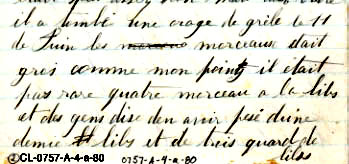 il a tombé une orage de grêle le 11
de Juin les morceaux était
gros comme mon point il était
pas rare quatre morceau a la libs
et des gens dise den avoir pesé d'une
demie libs et de trois quard de
libs
CL-0757-A-4-a-80
0757-A-4-a-80